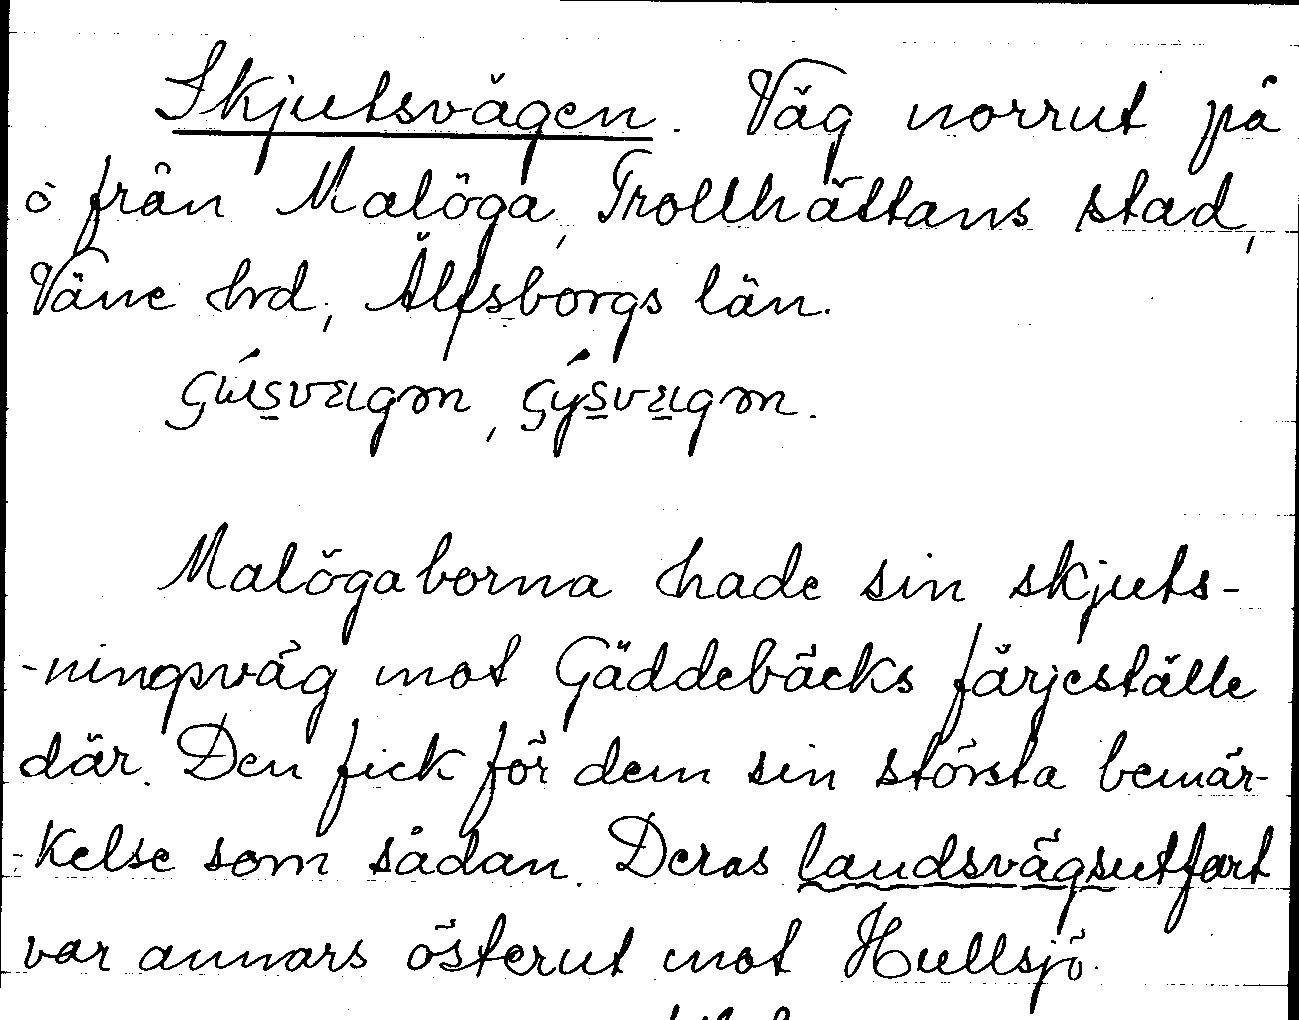 Skjutsvägen. Väg norrut på
ö från Malöga, Trollhättans stad,
Väne hrd, Älfsborgs län.
Malögaborna hade sin skjuts-
-ningsväg mot Gäddebäcks färjeställe
där. Den fick för dem sin största bemär-
-kelse som sådan. Deras landsvägsutfart
var annars österut mot Hullsjö.